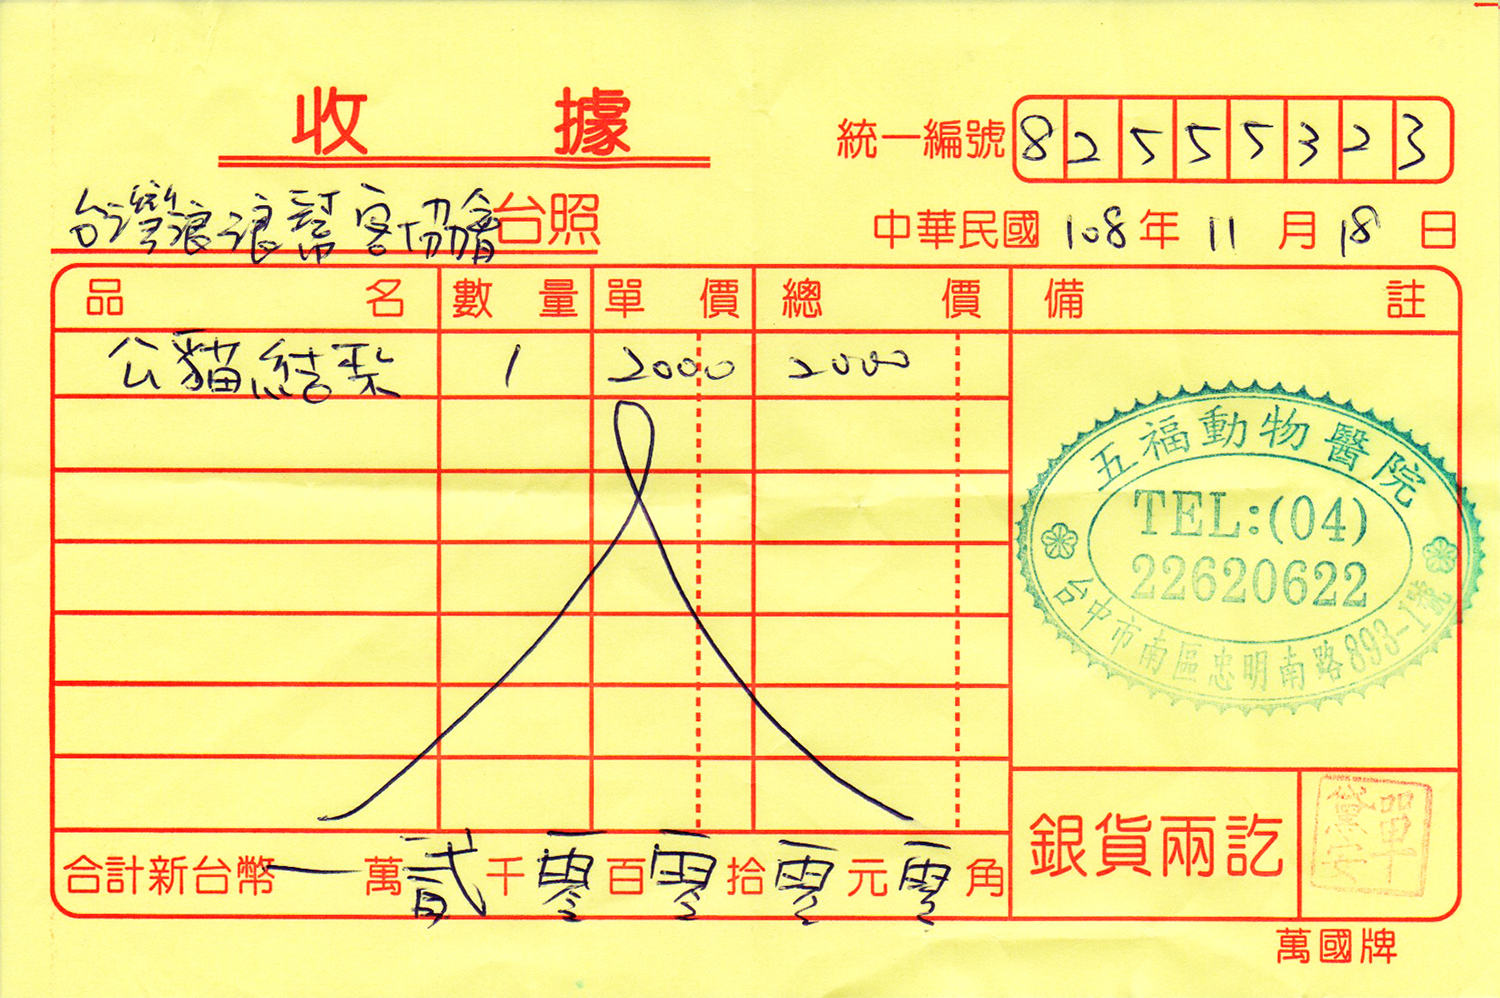 收據
統一編號 82555323
台灣浪浪幫客協會台照
中華民國 108 年 11 月 18 日
品名 數量 單價 總價 備註
公貓結紮 1 2000 2000
五福動物醫院
TEL:(04)
22620622
台中市南區忠明南路893-1號
合計新台幣 一 萬 貳 千 零 百 零 拾 零 元 零 角
銀貨兩訖
萬國牌